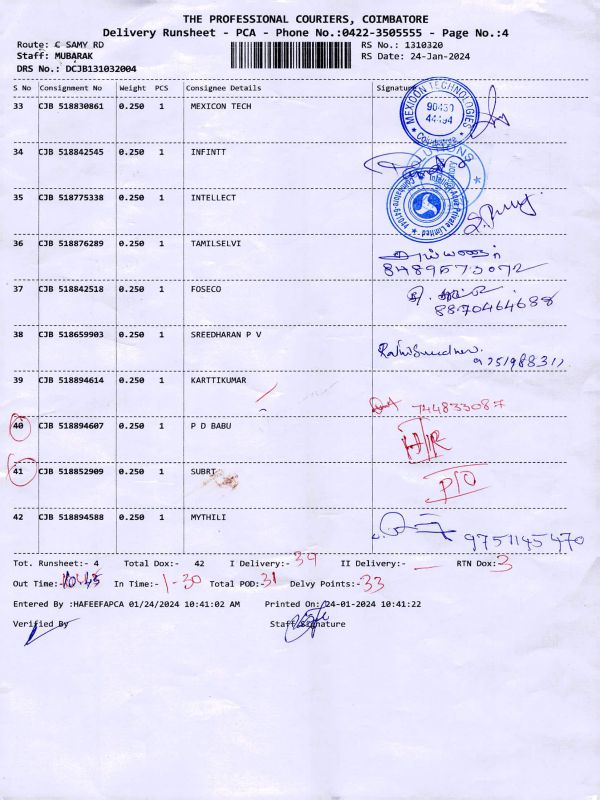 THE PROFESSIONAL COURIERS, COIMBATORE
Delivery Runsheet - PCA - Phone No.:0422-3505555 - Page No.:4
Route: C SAMY RD RS No.: 1310320
Staff: MUBARAK RS Date: 24-Jan-2024
DRS No.: DCJB131032004
S No Consignment No Weight PCS Consignee Details Signature
33 CJB 518830861 0.250 1 MEXICON TECH
MEXICON TECHNOLOGIES
90430
44494
Coimbatore
34 CJB 518842545 0.250 1 INFINTT
35 CJB 518775338 0.250 1 INTELLECT
36 CJB 518876289 0.250 1 TAMILSELVI
8489573072
37 CJB 518842518 0.250 1 FOSECO
8870464688
38 CJB 518659903 0.250 1 SREEDHARAN P V
39 CJB 518894614 0.250 1 KARTTIKUMAR
744833087
40 CJB 518894607 0.250 1 P D BABU
41 CJB 518852909 0.250 1 SUBRI
P/O
42 CJB 518894588 0.250 1 MYTHILI
9751145470
Tot. Runsheet:- 4 Total Dox:- 42 I Delivery:- 39 II Delivery:- — RTN Dox:- 3
Out Time:- 10.45 In Time:- 1-30 Total POD:- 31 Delvy Points:- 33
Entered By :HAFEEFAPCA 01/24/2024 10:41:02 AM Printed On:/24-01-2024 10:41:22
Verified By Staff Signature